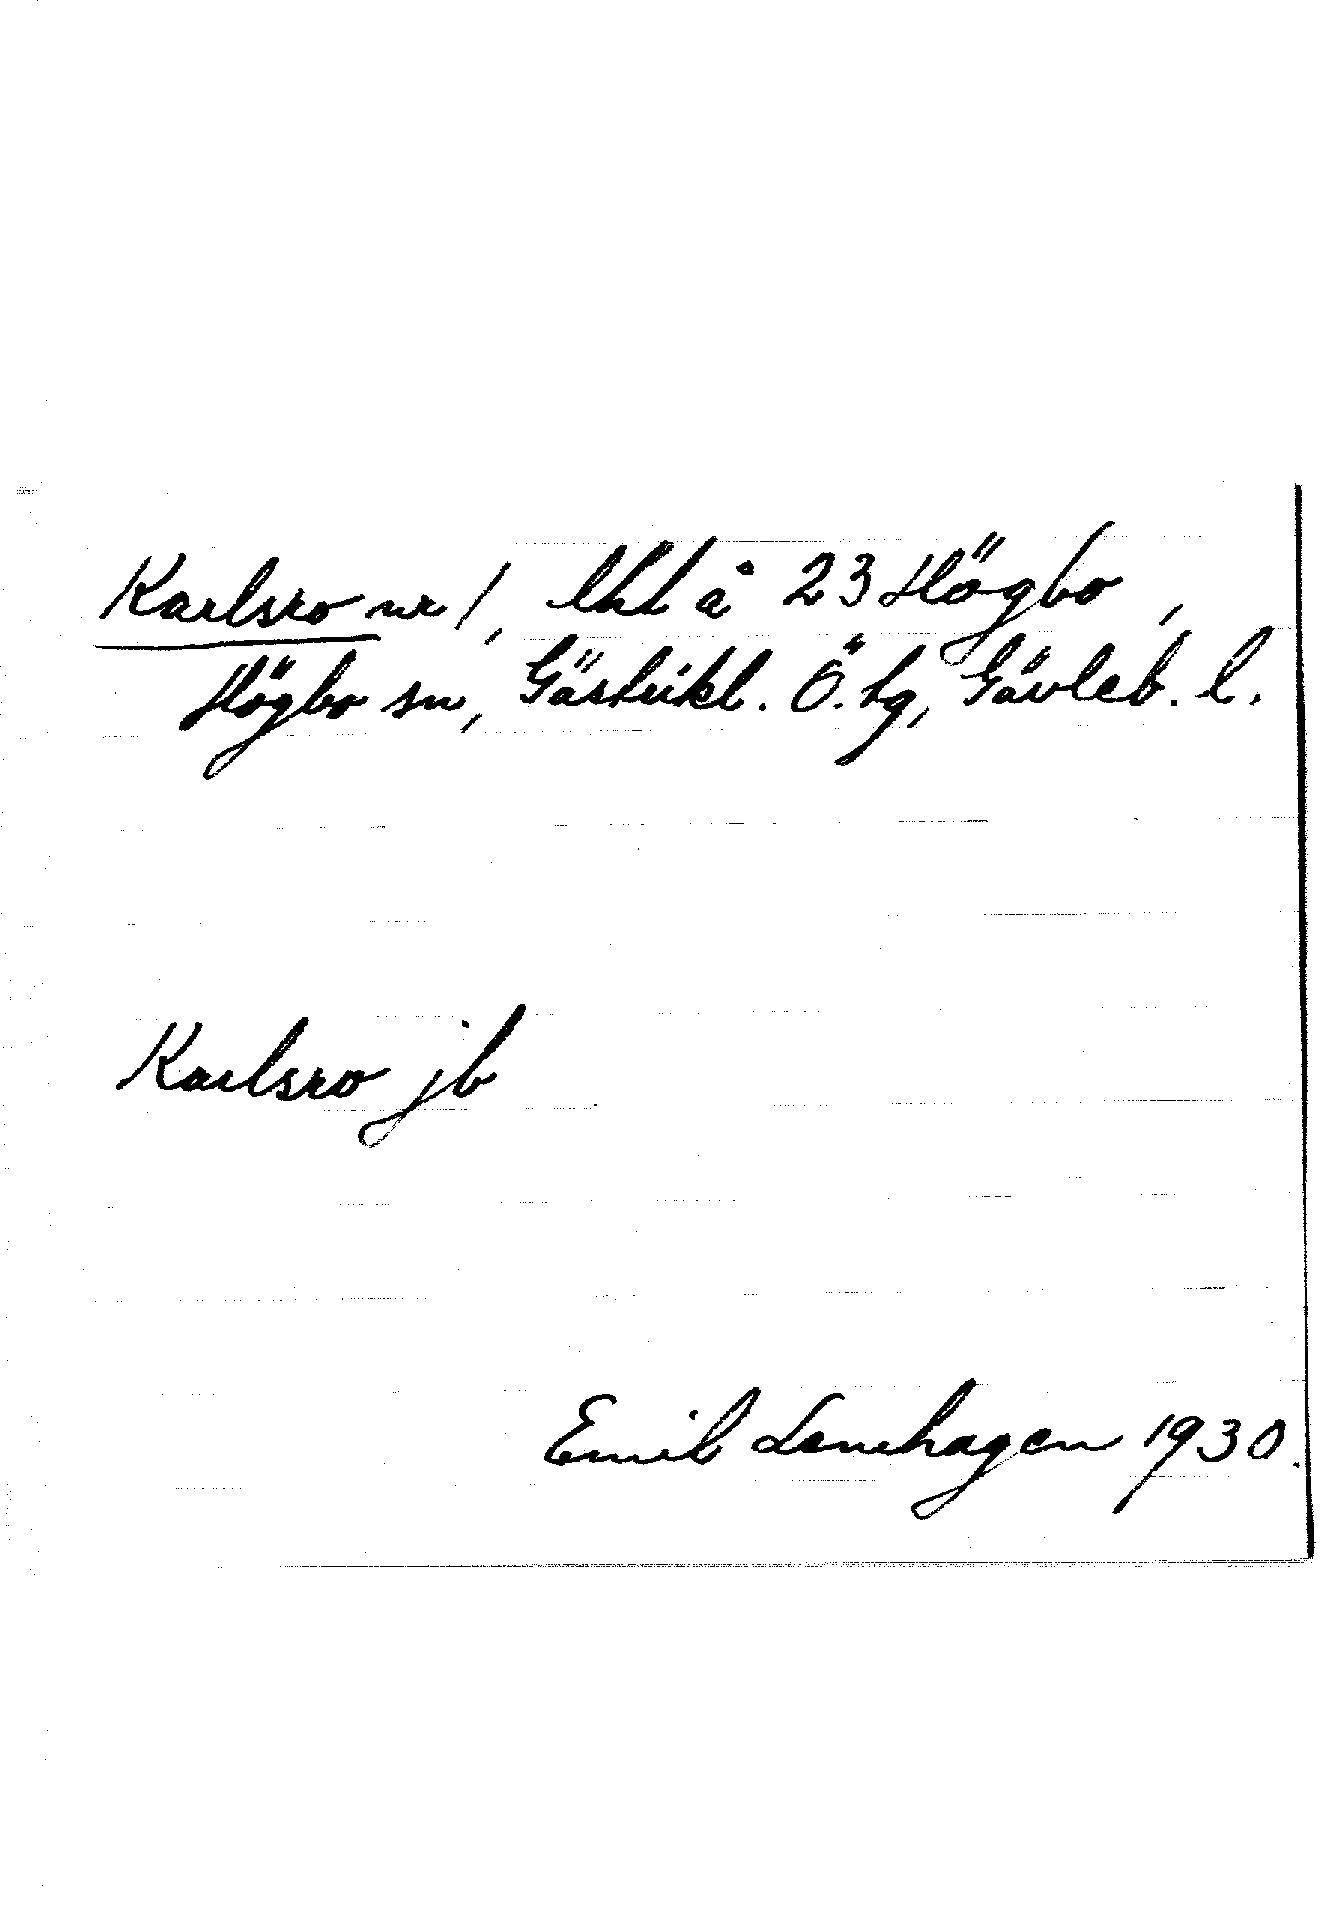 Karlsro nr 1, lht å 23 Högbo,
Högbo sn, Gästrikl. Ö. tg, Gävleb. l.
Karlsro jb
Emil Lenehagen 1930.